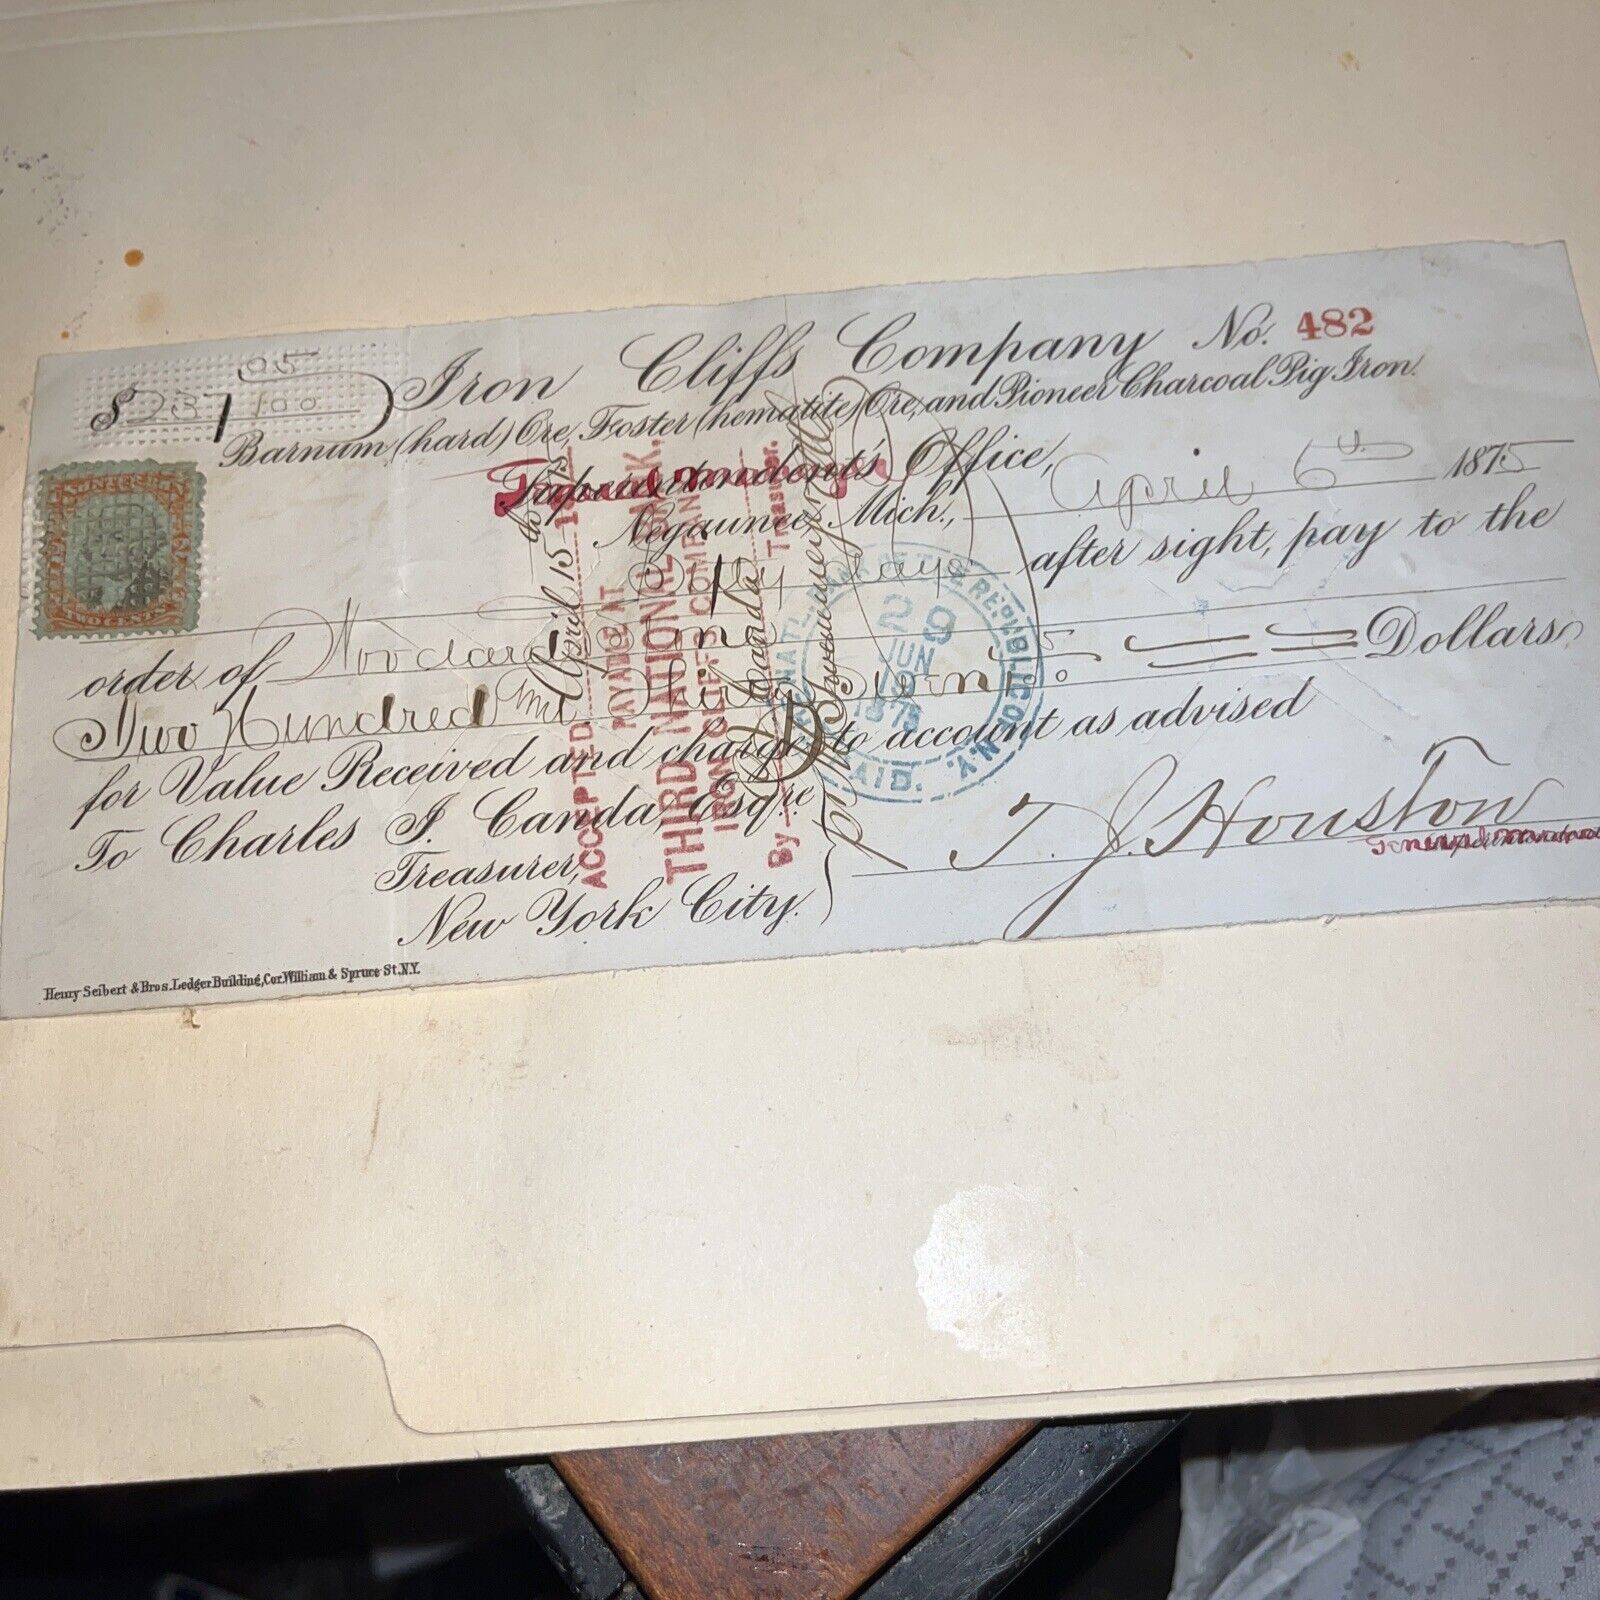 Iron Cliffs Company No. 482
$237 05/100
Barnum (hard) Ore, Foster (hematite) Ore, and Pioneer Charcoal Pig Iron.
Superintendent's Office,
Negaunee, Mich., April 6th 1875
Sixty days after sight, pay to the
order of
Two Hundred Thirty Dollars
for Value Received and charge to account as advised
To Charles J. Canda, Esqre
Treasurer,
New York City.
T. J. Houston
General Manager
Henry Seibert & Bros. Ledger Building, Cor. William & Spruce St. N.Y.
TWO CENTS
ACCEPTED April 15th 1875
PAYABLE AT
THIRD NATIONAL BANK.
IRON CLIFFS COMPANY
By Treasurer.
NATL. BANK OF THE REPUBLIC OF N.Y.
29
JUN
1875
PAID.